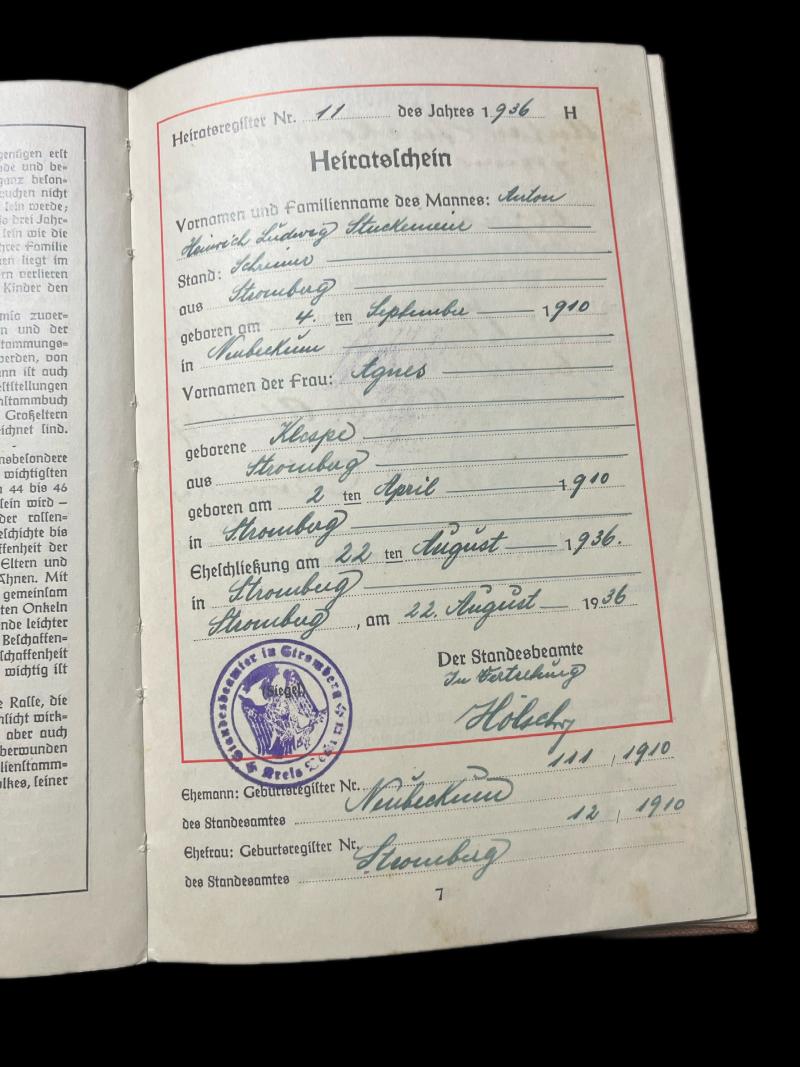 genügen erst
nde und be-
ganz beson-
suchen nicht
sein werde;
s drei Jahr-
sein wie die
hrer Familie
en liegt im
ern verlieren
Kinder den
mis zuver-
n und der
tammungs-
erden, von
nn ist auch
eststellungen
nstammbuch
Großeltern
ichnet sind.
nsbesondere
wichtigsten
n 44 bis 46
sein wird –
der rassen-
eschichte bis
ffenheit der
Eltern und
Ahnen. Mit
gemeinsam
ten Onkeln
nde leichter
Beschaffen-
schaffenheit
wichtig ist
Rasse, die
nlicht wirk-
aber auch
berwunden
ilienstamm-
olkes, seiner
Heiratsregister Nr. 11 des Jahres 1936 H
Heiratsschein
Vornamen und Familienname des Mannes: Anton
Heinrich Ludwig Stuckemeier
Stand: Schreiner
aus Stromberg
geboren am 4. ten September 1910
in Neubeckum
Vornamen der Frau: Agnes
geborene Klespe
aus Stromberg
geboren am 2 ten April 1910
in Stromberg
Eheschließung am 22 ten August 1936.
in Stromberg
Stromberg, am 22. August 1936
Der Standesbeamte
In Vertretung
(Siegel)
Standesbeamter in Stromberg
Kreis
Ehemann: Geburtsregister Nr. 111, 1910
des Standesamtes Neubeckum
Ehefrau: Geburtsregister Nr. 12, 1910
des Standesamtes Stromberg
7